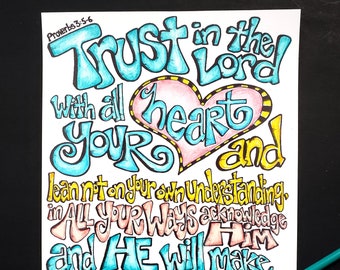 Proverbs 3:5-6
Trust in the
Lord
with all
YOUR heart
and
lean not on your own understanding.
in ALL YOUR WAYS acknowledge
Him
and HE will make